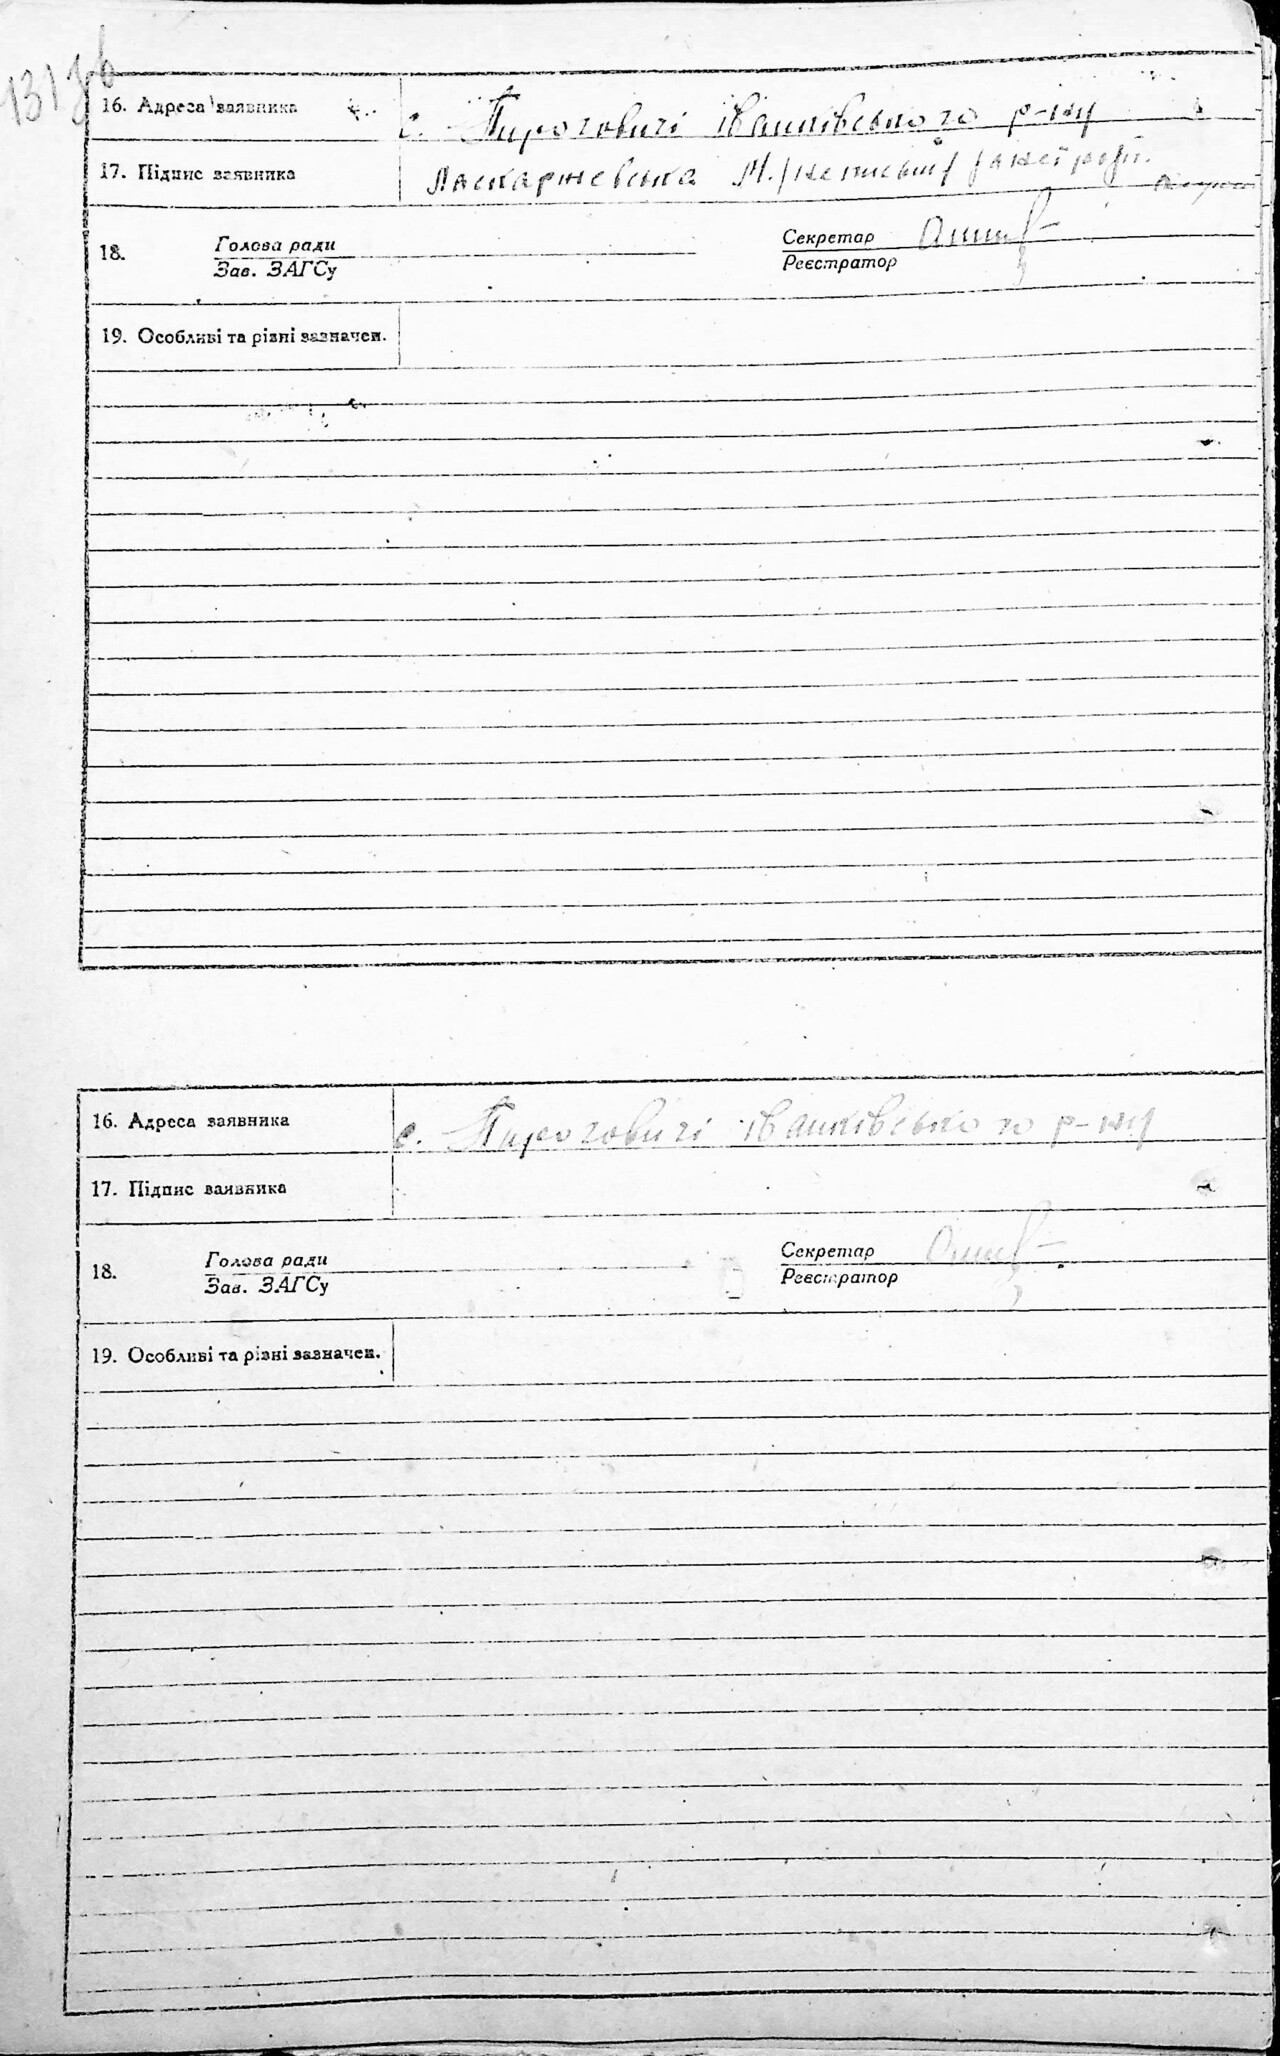 16. Адреса заявника с. Пироговичі Іванківського р-ну
17. Підпис заявника Ласкаржевська М. /неписьм/
18. Голова ради Секретар
Зав. ЗАГСу Реєстратор
19. Особливі та різні зазначен.
16. Адреса заявника с. Пироговичі Іванківського р-ну
17. Підпис заявника
18. Голова ради Секретар
Зав. ЗАГСу Реєстратор
19. Особливі та різні зазначен.